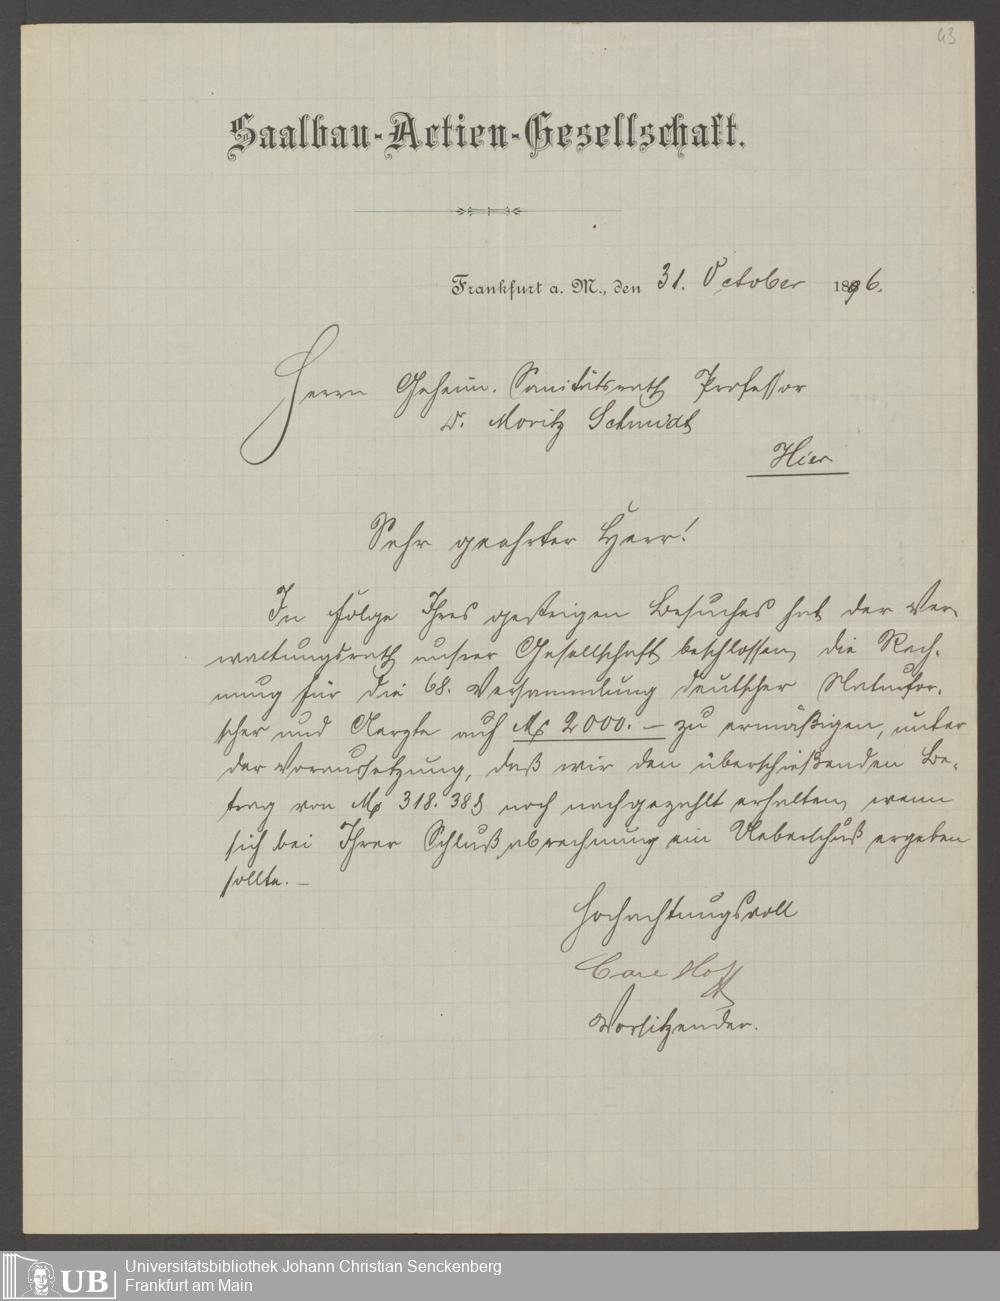 43
Saalbau-Actien-Gesellschaft.
Frankfurt a. M., den 31. October 1896.
Herrn Geheim. Sanitätsrath Professor
Dr. Moritz Schmidt
Hier
Sehr geehrter Herr!
In Folge Ihres gestrigen Besuches hat der Ver-
waltungsrath unsrer Gesellschaft beschlossen, die Rech-
nung für die 68. Versammlung deutscher Naturfor-
scher und Aerzte auf M 2000.- zu ermäßigen, unter
der Voraussetzung, daß wir den überschießenden Be-
trag von M 318.38 noch nachgezahlt erhalten, wenn
sich bei Ihrer Schlußabrechnung ein Ueberschuß ergeben
sollte. -
Hochachtungsvoll
Vorsitzender.
UB Universitätsbibliothek Johann Christian Senckenberg
Frankfurt am Main